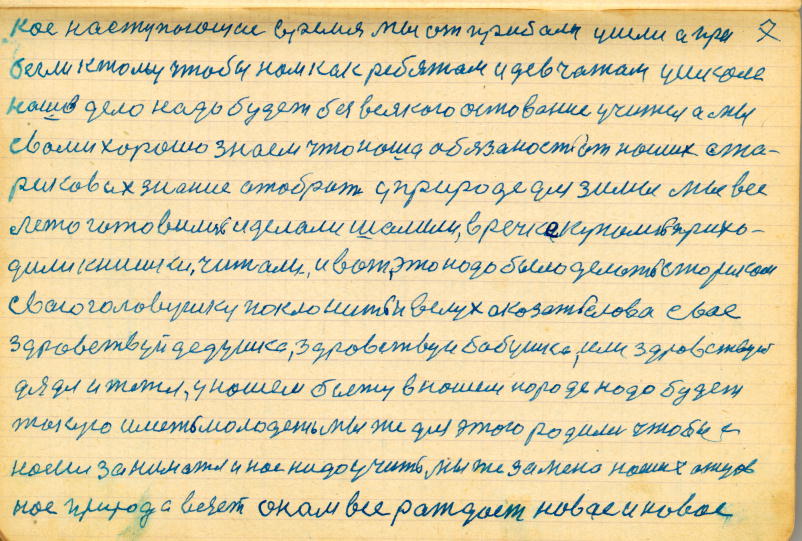 кое наступающие время мы от прибали ушли а при 7
бегли ктому чтобы нам как ребятам и девчатам у школе
наше дело надо будет без всякого остование учится а мы
свами хорошо знаем что наша обязаность от наших ста-
риков их знание отобрать а природе для зимы мы все
лето готовились и делали шалили, в речке купались прихо-
дили книшки, читали, и вот, это надо было делать старикам
сваю головушку поклонить и вслух сказать слова свае
здравствуй дедушка, здравствуй бабушка, или здравствуй
дядя и тетя, у нашем быту в нашем породе надо будет
такую иметь молодеть мы же для этого родили чтобы с
нами заниматся и нас надо учить, мы же замена наших отцов
нас природа везет она нам все раждает новае и новае